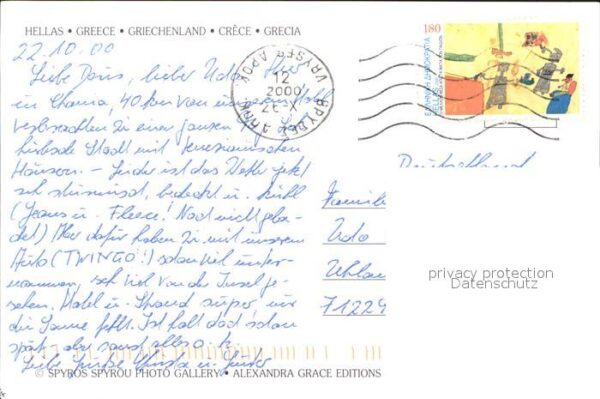 HELLAS • GREECE • GRIECHENLAND • CRÈCE • GRECIA
22.10.00
Liebe Doris, lieber Udo! Hier
in Chania, 40 km von unserem Hotel
verbrachten wir einen ganzen Tag.
hübsche Stadt mit venezianischen
Häusern. – Leider ist das Wetter jetzt
sehr stürmisch, bedeckt u. kühl
(Jeans u. Fleece! Noch nicht geba-
det) Aber dafür haben wir mit unserem
Auto (TWINGO!) schon viel unter-
nommen, sehr viel von der Insel ge-
sehen. Hotel u. Strand super, nur
die Sonne fehlt. Ist halt doch schon
spät, aber sonst alles o.k.
Liebe Grüße
180
ΕΛΛΗΝΙΚΗ ΔΗΜΟΚΡΑΤΙΑ
HELLAS
12
2000
Deutschland
Familie
Udo
71229
privacy protection
Datenschutz
© SPYROS SPYROU PHOTO GALLERY • ALEXANDRA GRACE EDITIONS